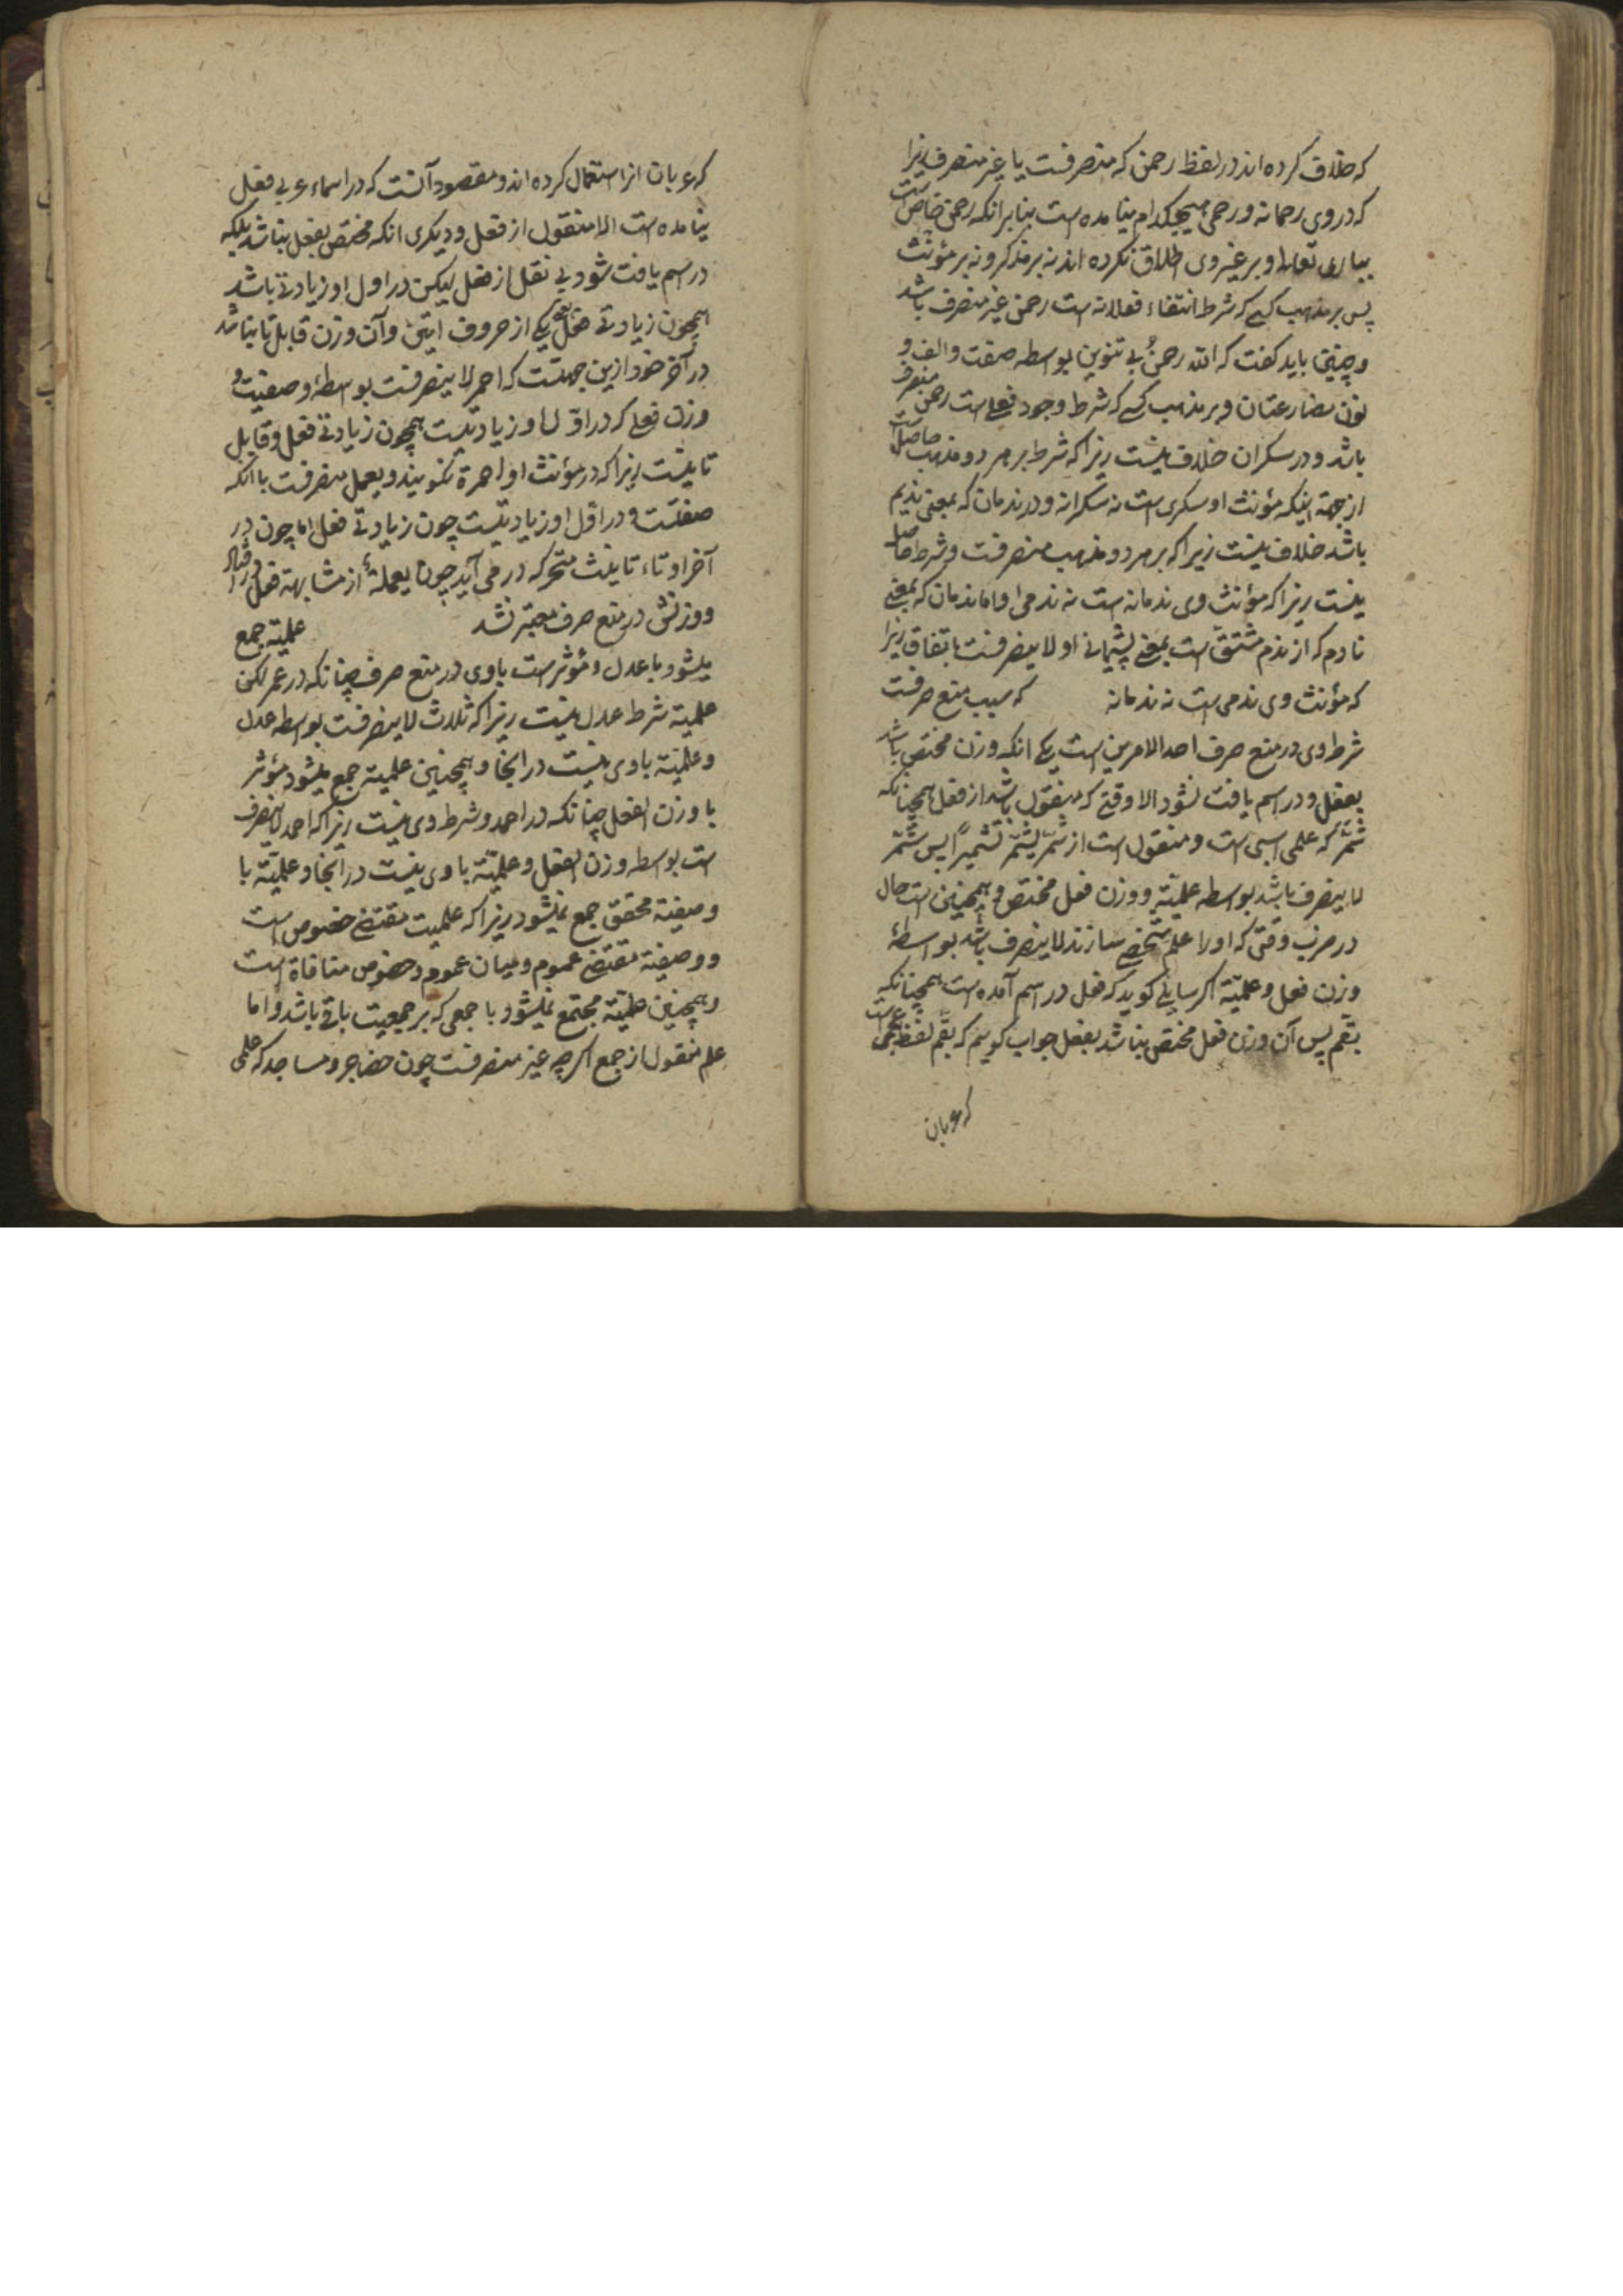 که خلاف کرده اند در لفظ رحمن که منصرفست یا غیر منصرف زیرا
که در وی رحمانه و رحمی هیچکدام نیامده است بنا بر انکه رحمن خاص است
بباری تعالی و بر غیر وی اطلاق نکرده اند نه بر مذکر و نه بر مؤنث
پس بر مذهب کسی که شرط انتفاء فعلانه است رحمن غیر منصرف باشد
وچنین باید کفت که الله رحمنُ بی تنوین بواسطه صفت والف و
نون مضارعتان و بر مذهب کسی که شرط وجود فعلی است رحمن منصرف
باشد و در سکران خلاف نیست زیرا که شرط بر هر دو مذهب حاصلست
از جهة اینکه مؤنث او سکری است نه سکرانه و در ندمان که بمعنی ندیم
باشد خلاف نیست زیرا که بر هر دو مذهب منصرفست و شرط حاصل
نیست زیرا که مؤنث وی ندمانه است نه ندمی و اما ندمان که بمعنی
نادم که از ندم مشتق است بمعنی پشیمانی او لا ینصرفست باتفاق زیرا
که مؤنث وی ندمی است نه ندمانه که سبب منع صرفست
شرط وی در منع صرف احد الامرین است یکی انکه وزن مختص باشد
بفعل و در اسم یافت نشود الا وقتی که منقول باشد از فعل همچنانکه
شمّر که علم اسبی است و منقول است از شمّر یشمّر تشمیرًا پس شمّر
لا ینصرف باشد بواسطه علمیّة و وزن فعل مختص و همچنین است حال
در ضرب وقتی که اورا علم شخصی سازند لا ینصرف باشد بواسطهٔ
وزن فعل و علمیّة اکر سایلی کوید که فعل در اسم آمده است همچنانکه
بقّم پس آن وزن فعل مختص نباشد بفعل جواب کوییم که بقّم لفظ عجمی است
که عربان
که عربان انرا استعمال کرده اند و مقصود آنست که در اسماء عربی فعل
نیامده است الا منقول از فعل و دیکری انکه مختص بفعل نباشد بلکه
در اسم یافت شود بی نقل از فعل لیکن در اول او زیادتی باشد
همچون زیادتی فعل یعنی یکی از حروف اتین وآن وزن قابل تا نباشد
در آخر خود ازین جهتست که احمر لا ینصرفست بواسطهٔ وصفیت و
وزن فعلی که در اوّل او زیادتیست همچون زیادتی فعل و قابل
تا نیست زیرا که در مؤنث او احمرة نکویند و یعمل منصرفست با انکه
صفتست و در اوّل او زیادتیست چون زیادتی فعل اما چون در
آخر او تاء تانیث متحرکه در می آید چون یعملةٌ از مشابهة فعل دور افتاد
و وزنش در منع صرف معتبر نشد علمیّة جمع
میشود با عدل و مؤثر است با وی در منع صرف چنانکه در عمر لکن
علمیّة شرط عدل نیست زیرا که ثلاث لا ینصرفست بواسطه عدل
و علمیّة با وی نیست در انجا و همچنین علمیة جمع میشود مؤثر
با وزن الفعل چنانکه در احمد و شرط وی نیست زیرا که احمر لا ینصرف
است بواسطه وزن الفعل و علمیّة با وی نیست در انجا و علمیّة با
وصفیة محقق جمع نمیشود زیرا که علمیت مقتضی خصوص است
و وصفیة مقتضی عموم و میان عموم و خصوص منافاة است
وهمچنین علمیّة مجتمع نمیشود با جمعی که بر جمعیت باقی باشد و اما
علم منقول از جمع اکرچه غیر منصرفست چون حضاجر و مساجد که علمی